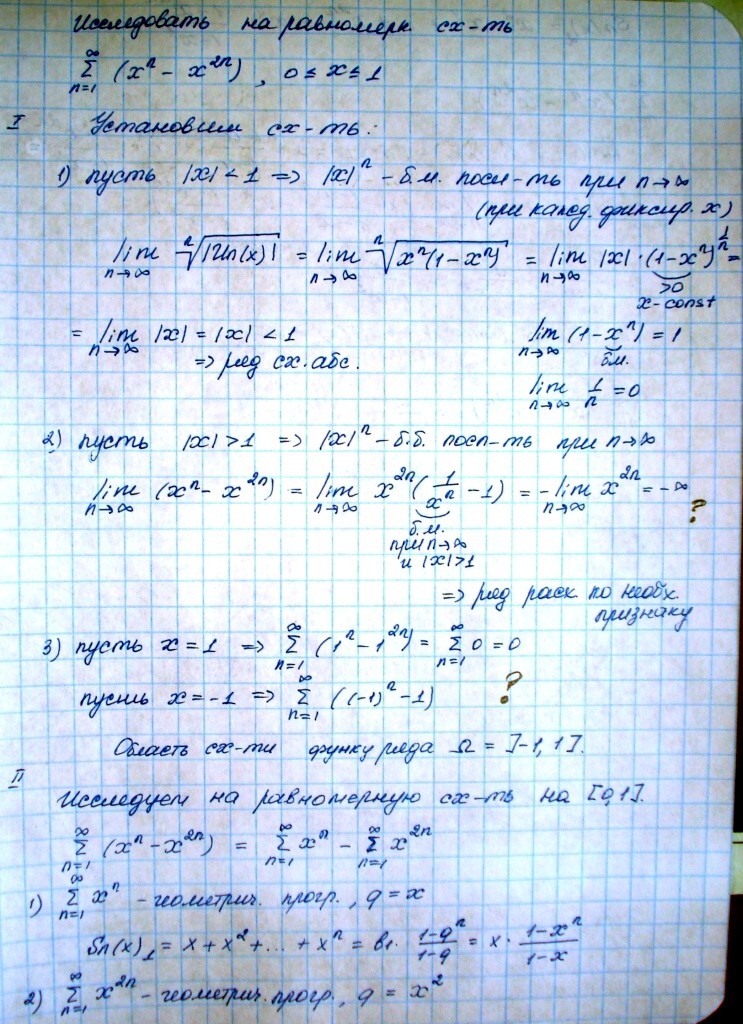 Исследовать на равномерн. сх-ть
∞ Σ n=1 (xⁿ - x²ⁿ), 0 ≤ x ≤ 1
I Установим сх-ть:
1) пусть |x| < 1 => |x|ⁿ - б.м. посл-ть при n→∞
(при кажд. фиксир. x)
lim n→∞ ⁿ√|Un(x)| = lim n→∞ ⁿ√xⁿ(1-xⁿ) = lim n→∞ |x|·(1-xⁿ)^(1/n) =
>0
x-const
= lim n→∞ |x| = |x| < 1
lim n→∞ (1-xⁿ) = 1
=> ряд сх. абс.
б.м.
lim n→∞ 1/n = 0
2) пусть |x| > 1 => |x|ⁿ - б.б. посл-ть при n→∞
lim n→∞ (xⁿ - x²ⁿ) = lim n→∞ x²ⁿ(1/xⁿ - 1) = -lim n→∞ x²ⁿ = -∞
?
б.м.
при n→∞
и |x|>1
=> ряд расх по необх.
признаку
3) пусть x = 1 => ∞ Σ n=1 (1ⁿ - 1²ⁿ) = ∞ Σ n=1 0 = 0
пусть x = -1 => ∞ Σ n=1 ((-1)ⁿ - 1) ?
Область сх-ти функц ряда Ω = ]-1, 1].
II
Исследуем на равномерную сх-ть на [0,1].
∞ Σ n=1 (xⁿ - x²ⁿ) = ∞ Σ n=1 xⁿ - ∞ Σ n=1 x²ⁿ
1) ∞ Σ n=1 xⁿ - геометрич. прогр., q = x
Sn(x)₁ = x + x² + ... + xⁿ = b₁ · (1-qⁿ)/(1-q) = x · (1-xⁿ)/(1-x)
2) ∞ Σ n=1 x²ⁿ - геометрич. прогр., q = x²